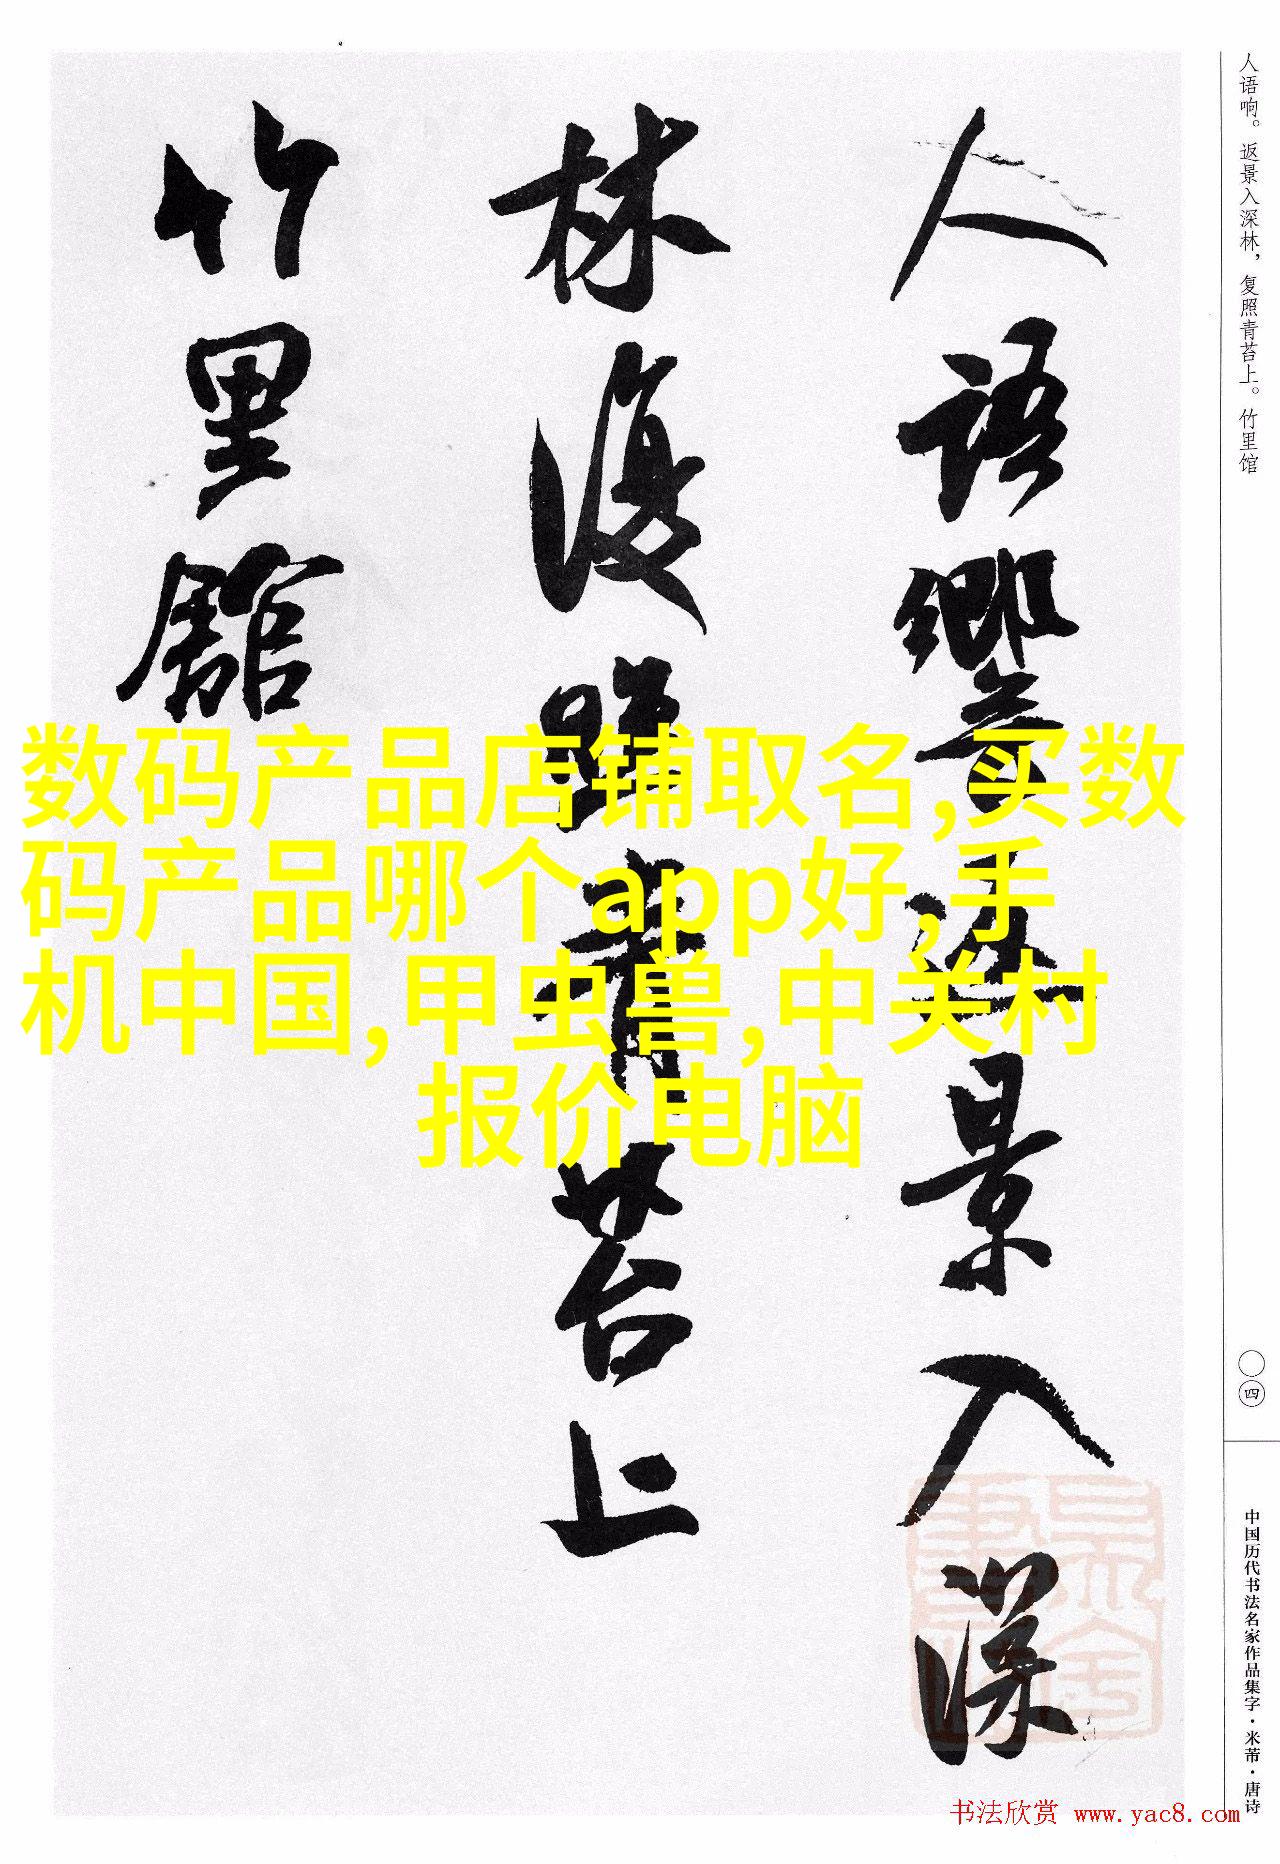 人语响。返景入深林，复照青苔上。竹里馆
人語響返景入深
林復照青苔上
竹里館
数码产品店铺取名,买数
码产品哪个app好,手
机中国,甲虫兽,中关村
报价电脑
〇四
中国历代书法名家作品集字·米芾·唐诗
书法欣赏 www.yac8.com